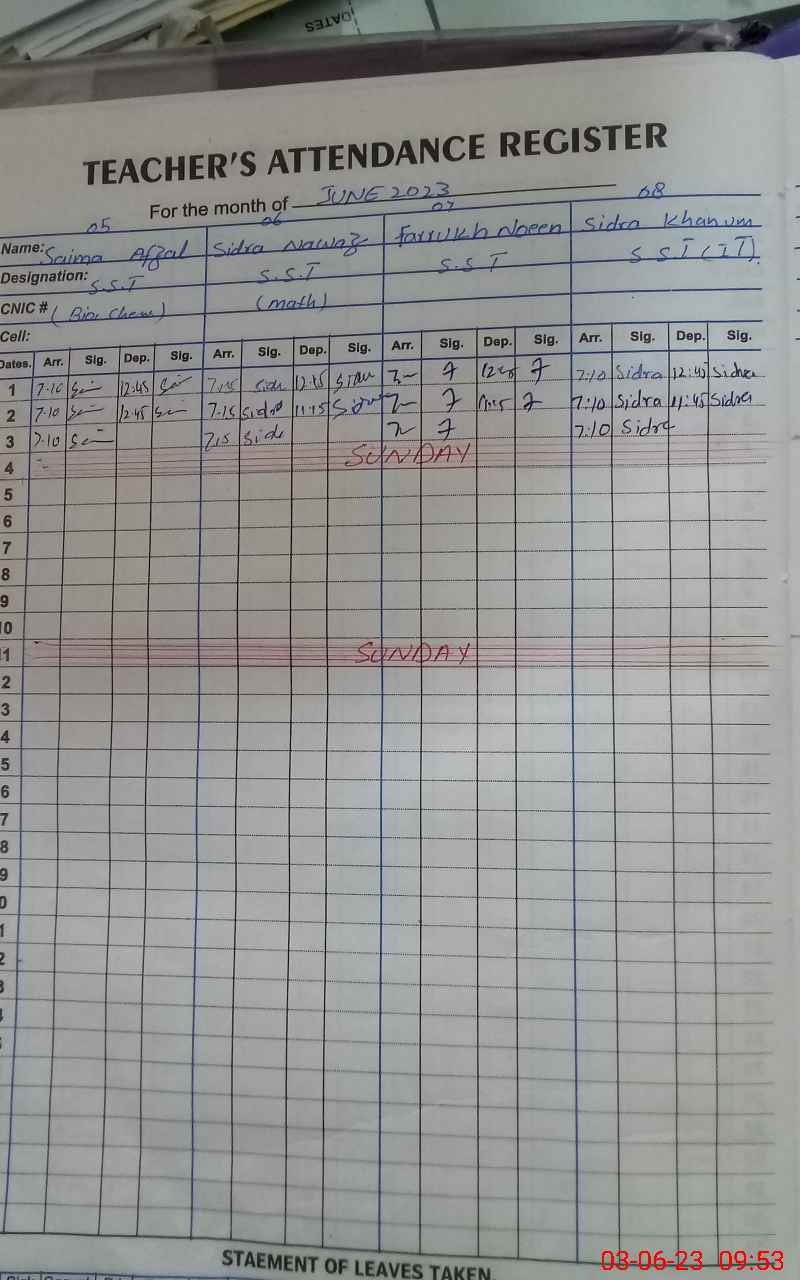 DATES
TEACHER'S ATTENDANCE REGISTER
For the month of JUNE 2023
05 06 07 08
Name: Saima Afzal Sidra Nawaz Farrukh Noeen Sidra Khanum
Designation: S.S.T S.S.T S.S.T S S T (IT)
CNIC # (Bio. Chem) (math)
Cell:
Dates. Arr. Sig. Dep. Sig. Arr. Sig. Dep. Sig. Arr. Sig. Dep. Sig. Arr. Sig. Dep. Sig.
1 7-10 12:45 7.15 12.15 7:10 Sidra 12:45 Sidra
2 7-10 12.45 7.15 Sidra 11.15 7:10 Sidra 11:45 Sidra
3 7-10 7.15 7:10 Sidra
4 SUNDAY
5
6
7
8
9
10
11 SUNDAY
2
3
4
5
6
7
8
9
0
1
2
3
STAEMENT OF LEAVES TAKEN
03-06-23 09:53